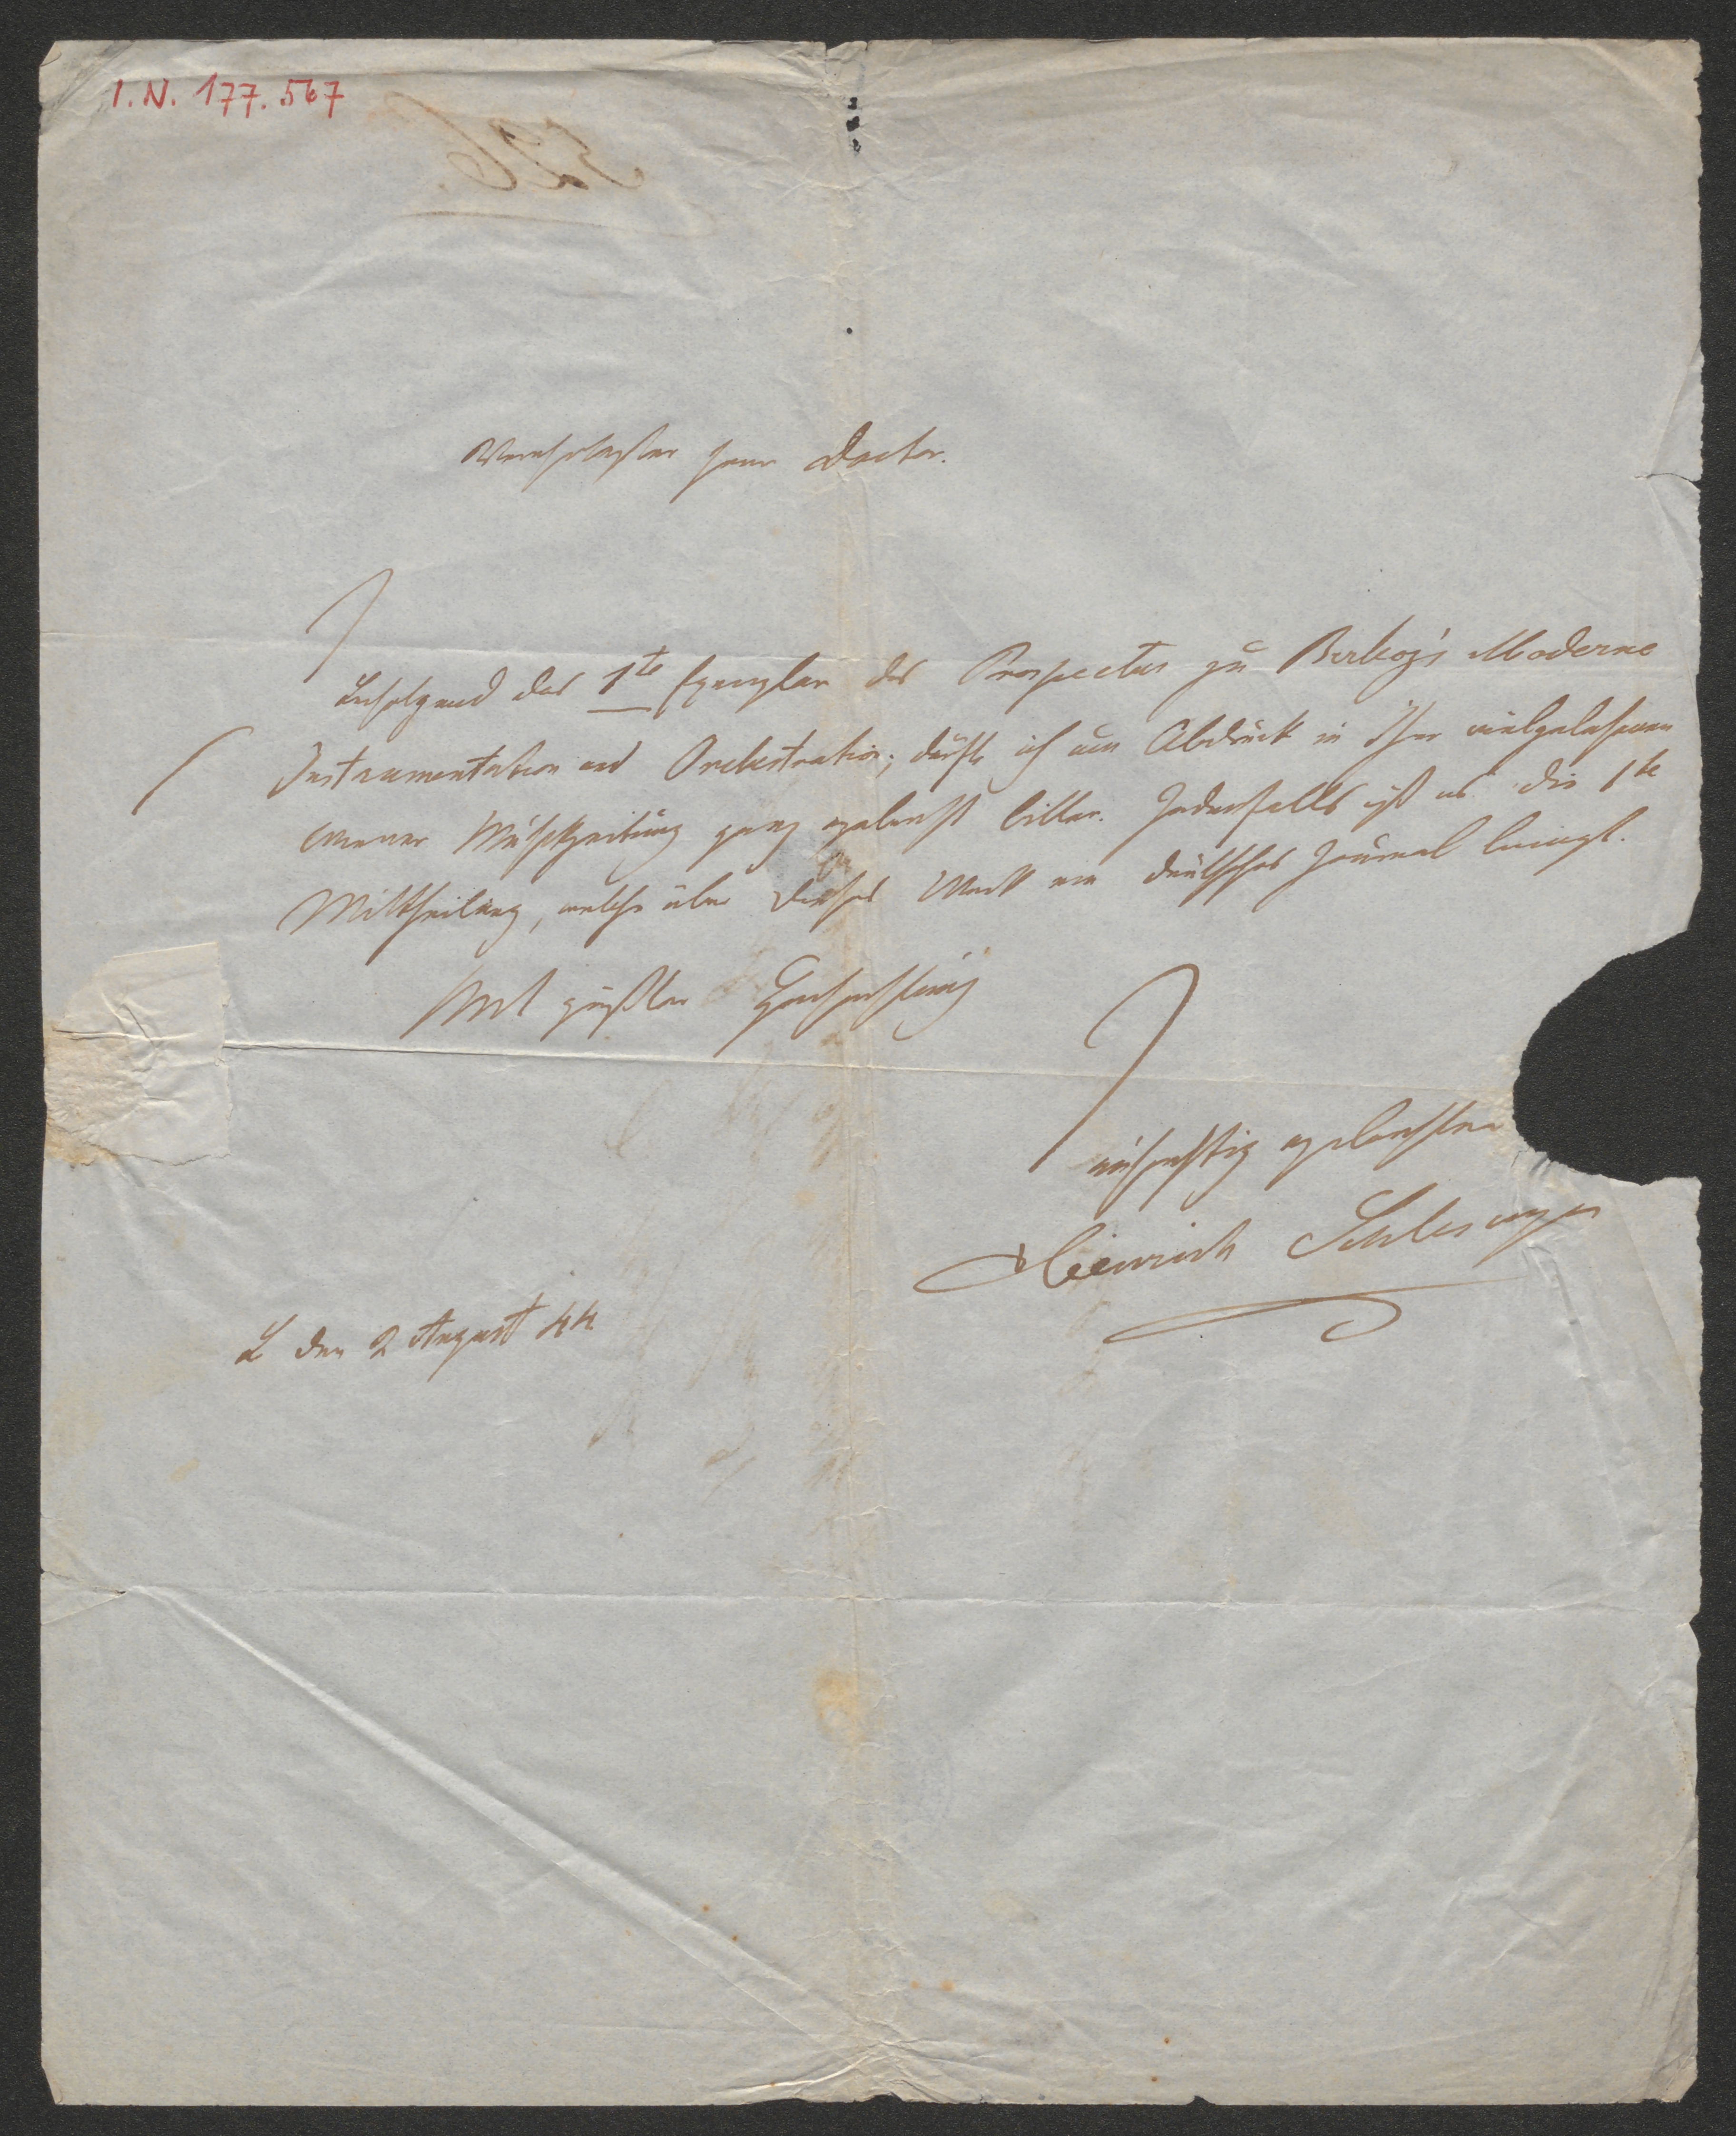 I.N. 177.567
526.
Verehrtester Herr Doctor.
Beifolgend das 1te Exemplar des Prospectus zu Berlioz's Moderne
Instrumentation und Orchestration; dürfte ich um Abdruck in Ihrer vielgelesenen
Wiener Musikzeitung ganz ergebenst bitten. Jedenfalls ist es die 1te
Mittheilung, welche über dieses Werk ein deutsches Journal bringt.
Mit größter Hochachtung
aufrichtig ergebenster
Heinrich Schlesinger
L den 2 August 44.